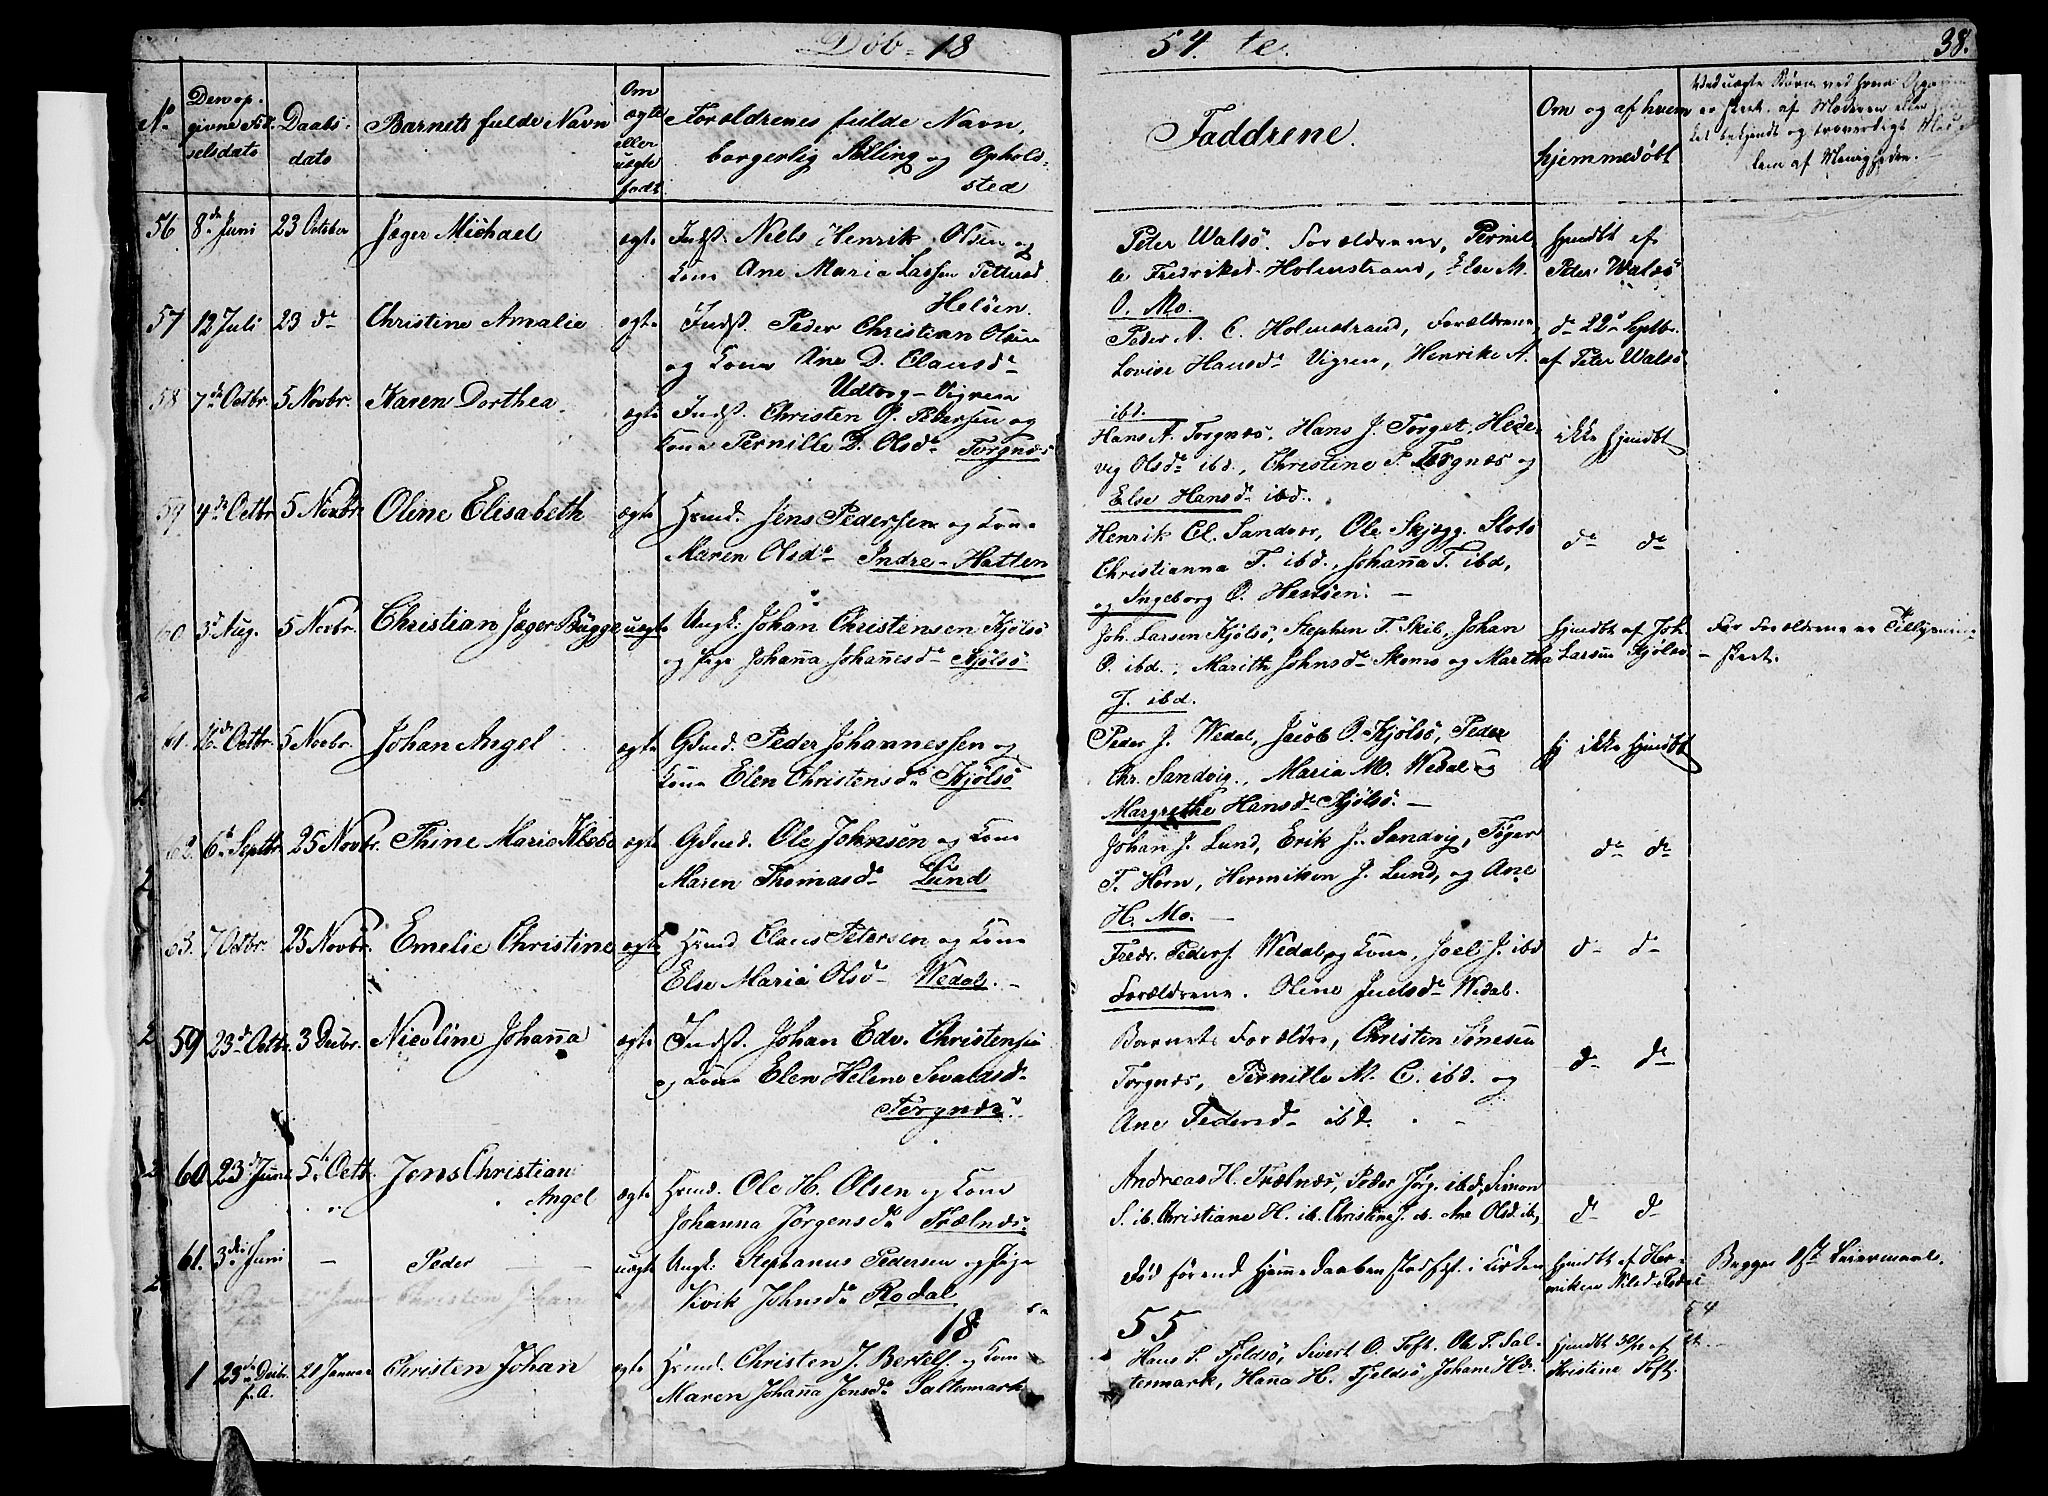 Døb = 18
54. te.
38.
No
Den op-
givne Fød-
selsdato
Daabs-
dato
Barnets fulde Navn
Om
ægte
eller
uægte
født
Forældrenes fulde Navn,
borgerlig Stilling og Ophold-
sted
Faddrene.
Om og af hvem
hjemmedøbt
Ved uægte Børn ved hvem
er skeet, af Moderen eller
bekjendt og troværdigt
lem af Menigheden. -
56 8de Juni 23 October Jæger Michael ægte Indst: Niels Henrik Olsen og
Kone Ane Maria Larsen Pettersd
Helöen.
Peter Walsö. Forældrene, Pernil-
le Fredriksd. Holmstrand, Else M.
O. Mo.
hjmdbt af
Peter Walsö
57 12 Juli 23 de Christine Amalie ægte Indst. Peder Christian Olsen
og Kone Ane D. Clausdr
Udtorg - Vigren
Peder A. C. Holmstrand, Forældrene
Lovise Hansdr Vigren, Henrike A.
ibd.
de 22de Septbr.
af Peter Walsö
58 7de Octbr. 5 Novbr. Karen Dorthea. ægte Indst. Christen G. Petersen og
Kone Pernille D. Olsdr Torgnæs
Hans A. Torgnæs, Hans J. Torget, Hede-
vig Olsdr ibd., Christine P. Torgnæs og
Else Hansdr ibd.
ikke hjmdbt
59 4de Octbr 5 Novbr. Oline Elisabeth ægte Hsmd. Jens Pedersen og Kone
Maren Olsdr Indre-Hatten
Henrik Cl. Sandvær, Ole Skjegg. Slots
Christianna T. ibd., Johanna T. ibd,
og Ingeborg O. Hestöen. -
de de
60 3d Aug. 5 Novbr. Christian Jæger Bugge uægte Ungk: Johan Christensen Kjölsö
og Pige Johanna Johannesdr Kjölsö
Joh. Larsen Kjölsö, Stephen T. Skil, Johan
O. ibd., Marith Johnsdr Aboms og Martha
J. ibd.
hjmdbt af Joh.
Larsen Kjölsö.
For Forældrene er Tillysning
- skeet.
61. 16d Octbr. 5 Novbr. Johan Angel ægte Gdmd. Peder Johannessen og
Kone Elen Christensdr Kjölsö
Peder J. Wedal, Jacob O. Kjölsö, Peder
Chr. Sandvig., Maria M. Wedal og
Margrethe Hansdr Kjölsö. -
ikke hjmdbt
62. 6d Septbr. 25 Novbr. Thine Marie Klæbo ægte Gdmd. Ole Johnsen og Kone
Maren Thomasdr Lund
Johan J. Lund, Erik J. Sandvig, Töger
T. Horn, Hermiken J. Lund, og Ane
H. Mo. -
de de
63. 7 Octbr. 25 Novbr. Emelie Christine ægte Hsmd Claus Petersen og Kone
Else Maria Olsd Wedal. -
Fredr. Peders. Wedal og Kone, Joel J. ibd
Forældrene. Oline Juelsdr Wedal.
d- d-
59 23d Octbr. 3 Decbr. Nicoline Johanna ægte Indst. Johan Edv. Christensen
og Kone Elen Helene Sivaldsdr
Torgnæs.
Barnets Forældre, Christen Sönesen
Torgnæs, Pernille M. C. ibd. og
Ane Pedersd ibd.
de de
60 23d Juni 5te Octb. Jens Christian
Angel
ægte Hsmd. Ole H. Olsen og Kone
Johanna Jørgensdr Trælnæs
Andreas H. Trælnæs, Peder Jörg. ibd, Simon
S. ib. Christiane H. ib. Christine J. ib. Ane Olsd. ib,
de de
61. 3die Juni - Peder - - uægte Ungk. Stephanus Pedersen og Pige
Kvik Johnsdr Rodal
Död förend Hjemmedaaben stadfæst. i Kirken
hjmdbt af Her-
miken Nilsd. Rodal
Begges 1ste Leiermaal.
18
55
1 29de Decbr.
f. A.
21 Januar Christen Johan ægte Hsmd. Christen J. Bertels. og Kone
Maren Johanna Jensdr Saltermark
Hans P. Fjeldsö, Sivert O. Toft. Ole P. Sal-
termark, Hana H. Fjeldsö, Johane Hdr
hjmdbt 30/12 af
Christine Toft.
54